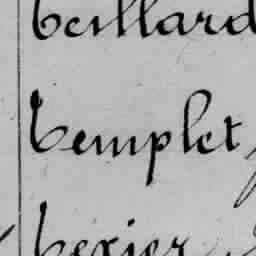 Teillard
Templet,
Texier,